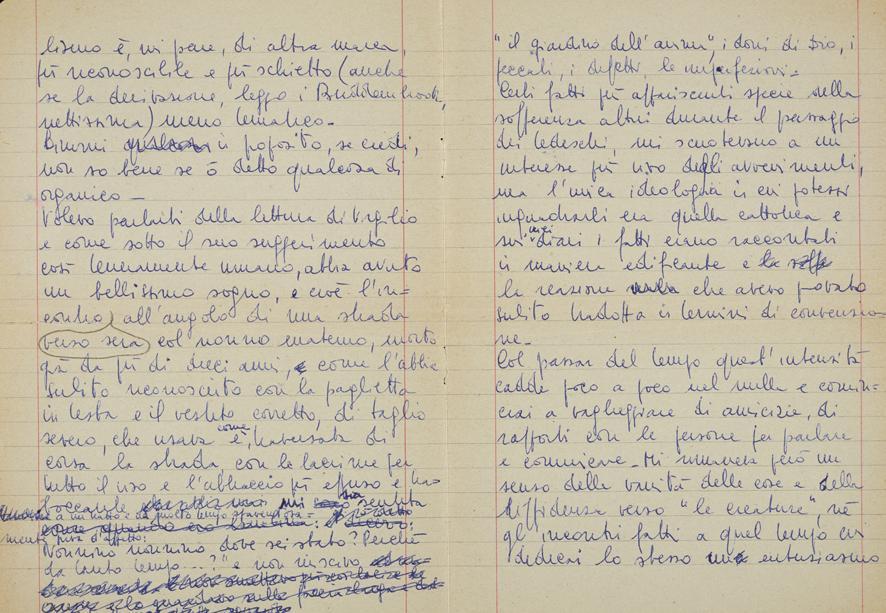 lismo è, mi pare, di altra marca,
più riconoscibile e più schietto (anche
se la derivazione, leggo i Buddenbrook,
nettissima) meno tematico.
Dimmi in proposito, se credi,
non so bene se ò detto qualcosa di
organico —
Volevo parlarti della lettura di Virgilio
e come sotto il suo suggerimento
così teneramente umano, abbia avuto
un bellissimo sogno, e cioè l'in=
contro, all'angolo di una strada
verso sera col nonno materno, morto
già da più di dieci anni, e come l'abbia
subito riconosciuto con la paglietta
in testa e il vestito corretto, di taglio
severo, che usava e, traversata di
come
corsa la strada, con le lacrime per
tutto il viso e l'abbraccio più effuso e
mi sia sentita
mente pura d'affetto:
Nonnino nonnino, dove sei stato? Perché
da tanto tempo...?" e non riuscivo
"il giardino dell'anima", i doni di Dio, i
peccati, i difetti, le imperfezioni -
Certi fatti più affascinanti specie della
sofferenza altrui durante il passaggio
dei tedeschi, mi scuotevano a un
interesse più vivo degli avvenimenti,
ma l'unica ideologia in cui potessi
inquadrarli era quella cattolica e
miei
sui diari i fatti erano raccontati
in maniera edificante e
la reazione che avevo provato
subito tradotta in termini di convenzio
ne -
Col passar del tempo quest'intensità
cadde poco a poco nel nulla e comin=
ciai a vagheggiare di amicizie, di
rapporti con le persone per parlare
e comunicare - Mi rimaneva però un
senso della vanità delle cose e della
diffidenza verso "le creature", né
gl'incontri fatti a quel tempo cui
dedicai lo stesso entusiasmo